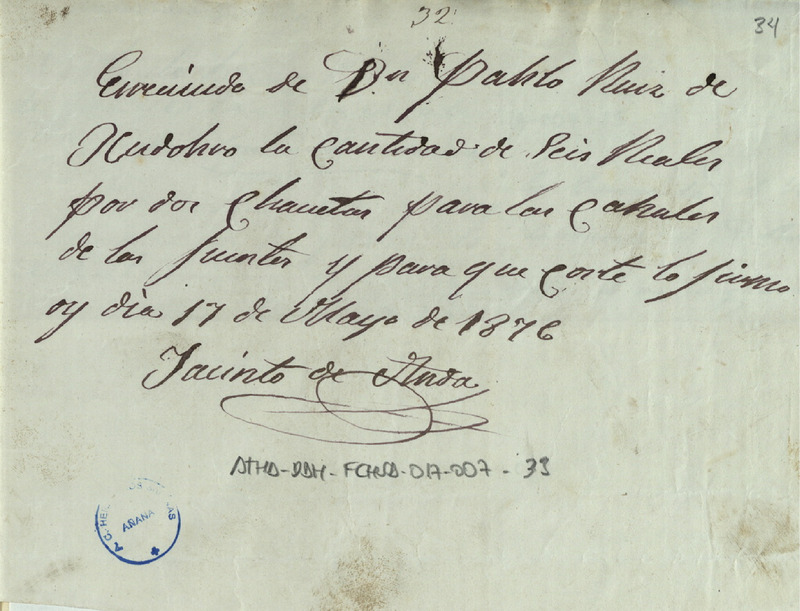 32
34
Erreciuido de Dn Pablo Ruiz de
Hudobro la Cantidad de Seis Reales
por dos Chauetas para las Cakales
de las fuentes y para que coste lo firmo
oy dia 17 de Mayo de 1876
Jacinto de Anda
ATHA-DAH-FCHSA-017-007-33
AÑANA